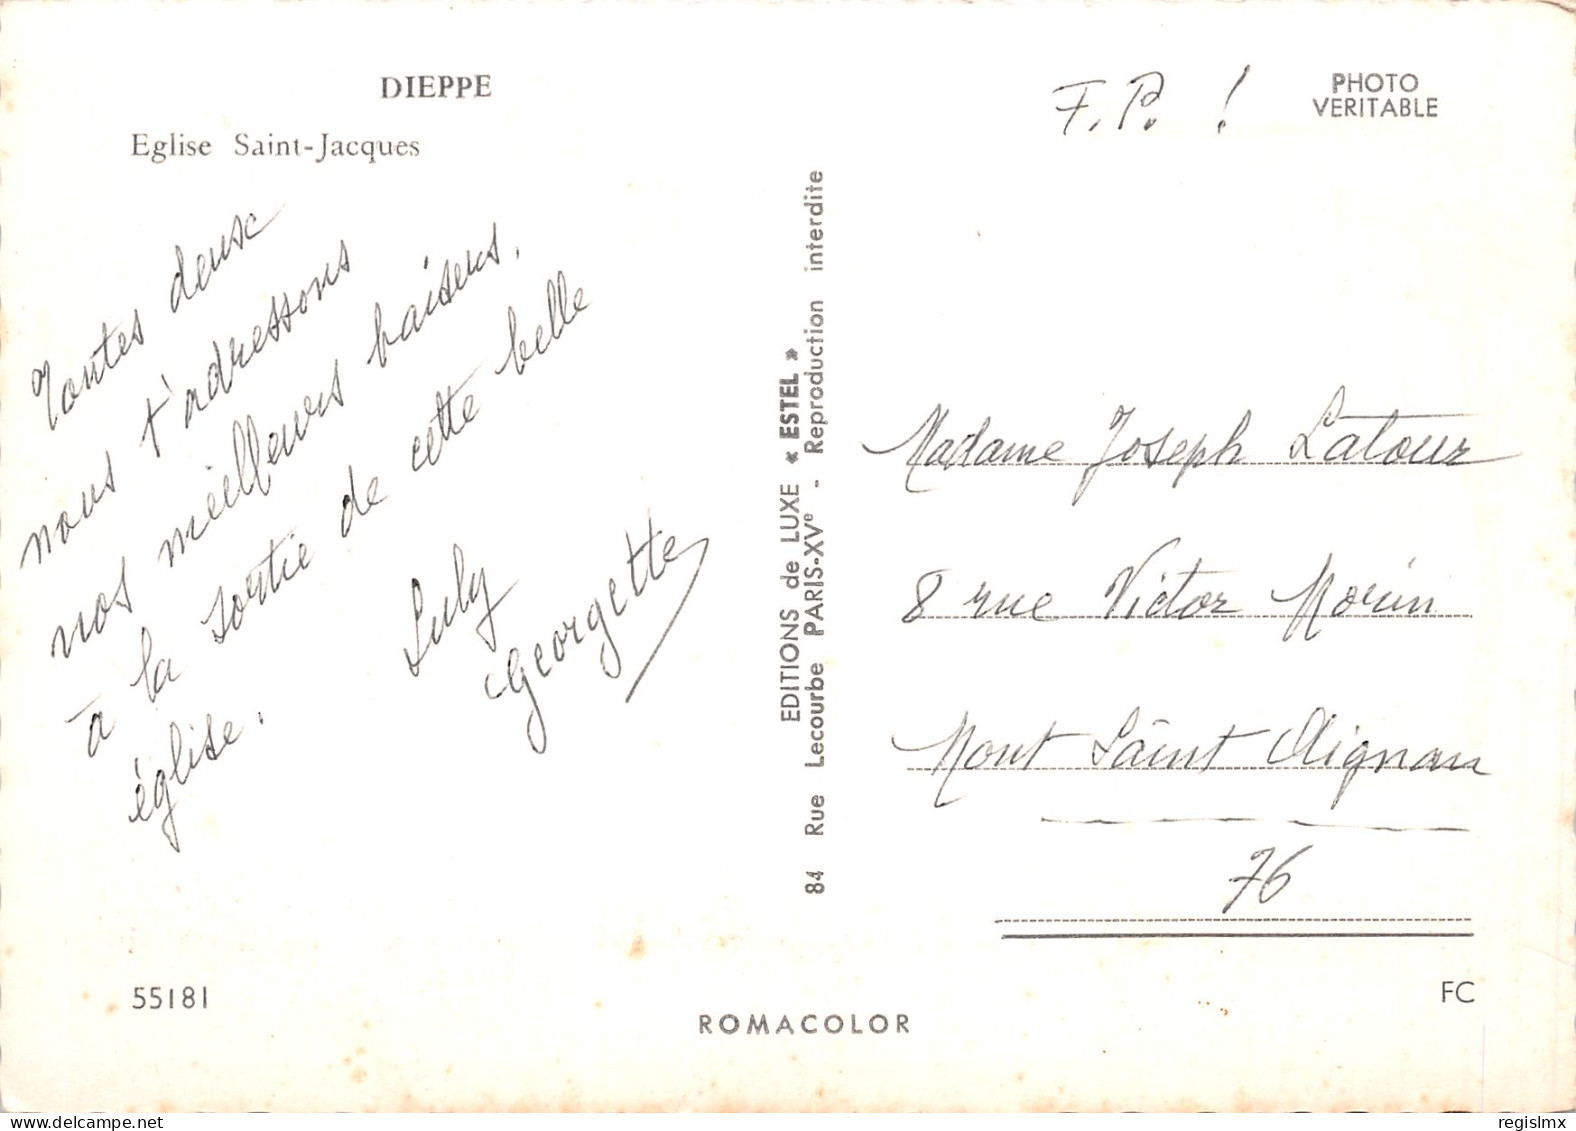 DIEPPE
Eglise Saint-Jacques
Toutes deux
nous t'adressons
nos meilleurs baisers,
à la sortie de cette belle
église.
Luly
Georgette
EDITIONS de LUXE « ESTEL »
84 Rue Lecourbe PARIS-XVe - Reproduction interdite
F.P. !
PHOTO
VERITABLE
Madame Joseph Latour
8 rue Victor Morin
Mont Saint Aignan
76
55181
ROMACOLOR
FC
regislmx